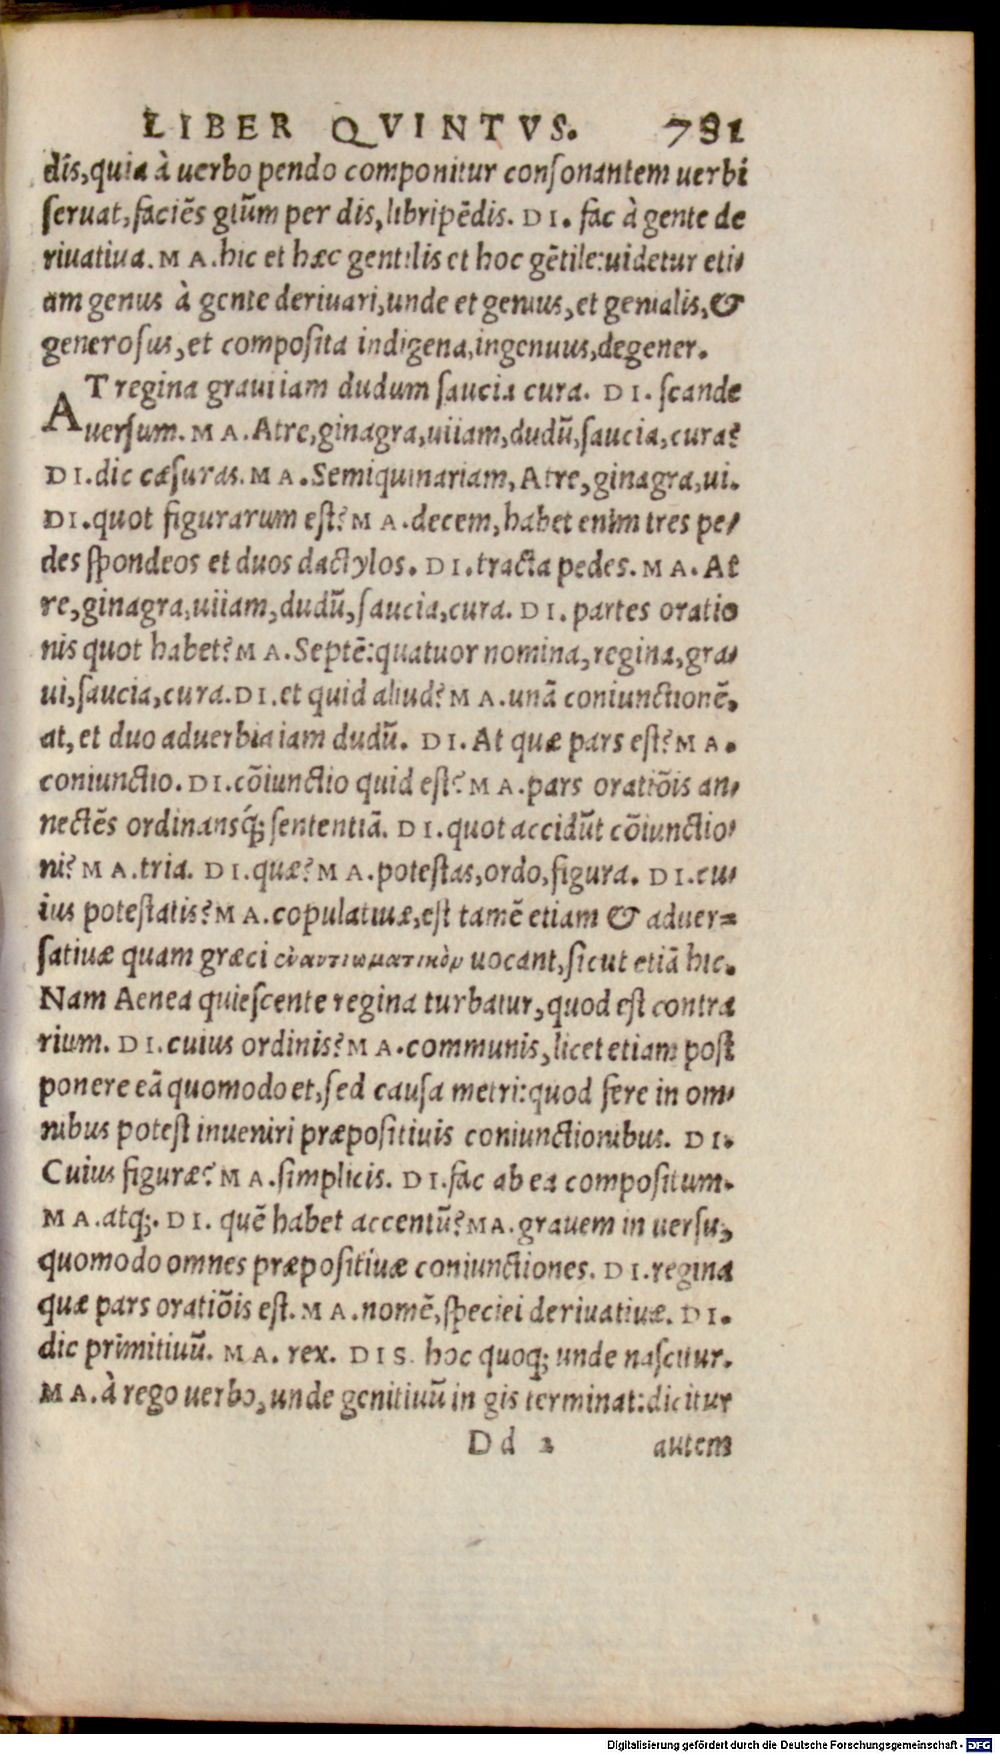 LIBER QVINTVS. 781
dis, quia à uerbo pendo componitur consonantem uerbi
seruat, faciẽs gtũm per dis, libripẽdis. DI. fac à gente de
riuatiua. MA. hic et hæc gentilis et hoc gẽtile: uidetur eti-
am genus à gente deriuari, unde et genius, et genialis, &
generosus, et composita indigena, ingenuus, degener.
AT regina graui iam dudum saucia cura. DI. scande
uersum. MA. Atre, ginagra, uiiam, dudũ, saucia, cura?
DI. dic cæsuras. MA. Semiquinariam, Atre, ginagra, ui.
DI. quot figurarum est? MA. decem, habet enim tres pe-
des spondeos et duos dactylos. DI. tracta pedes. MA. At
re, ginagra, uiiam, dudũ, saucia, cura. DI. partes oratio
nis quot habet? MA. Septẽ: quatuor nomina, regina, gra-
ui, saucia, cura. DI. et quid aliud? MA. unã coniunctionẽ.
at, et duo aduerbia iam dudũ. DI. At quæ pars est? MA.
coniunctio. DI. cõiunctio quid est? MA. pars oratiõis an-
nectẽs ordinansq́; sententiã. DI. quot accidũt cõiunctio-
ni? MA. tria. DI. quæ? MA. potestas, ordo, figura. DI. cu-
ius potestatis? MA. copulatiuæ, est tamẽ etiam & aduer=
satiuæ quam græci ἐναντιωματικὸν uocant, sicut etiã hic.
Nam Aenea quiescente regina turbatur, quod est contra
rium. DI. cuius ordinis? MA. communis, licet etiam post
ponere eã quomodo et, sed causa metri: quod fere in om-
nibus potest inueniri præpositiuis coniunctionibus. DI.
Cuius figuræ? MA. simplicis. DI. fac ab ea compositum.
MA. atq;. DI. quẽ habet accentũ? MA. grauem in uersu,
quomodo omnes præpositiuæ coniunctiones. DI. regina
quæ pars oratiõis est. MA. nomẽ, speciei deriuatiuæ. DI.
dic primitiuũ. MA. rex. DIS. hoc quoq; unde nascitur.
MA. à rego uerbo, unde genitiuũ in gis terminat: dicitur
Dd 2 autem
Digitalisierung gefördert durch die Deutsche Forschungsgemeinschaft - DFG